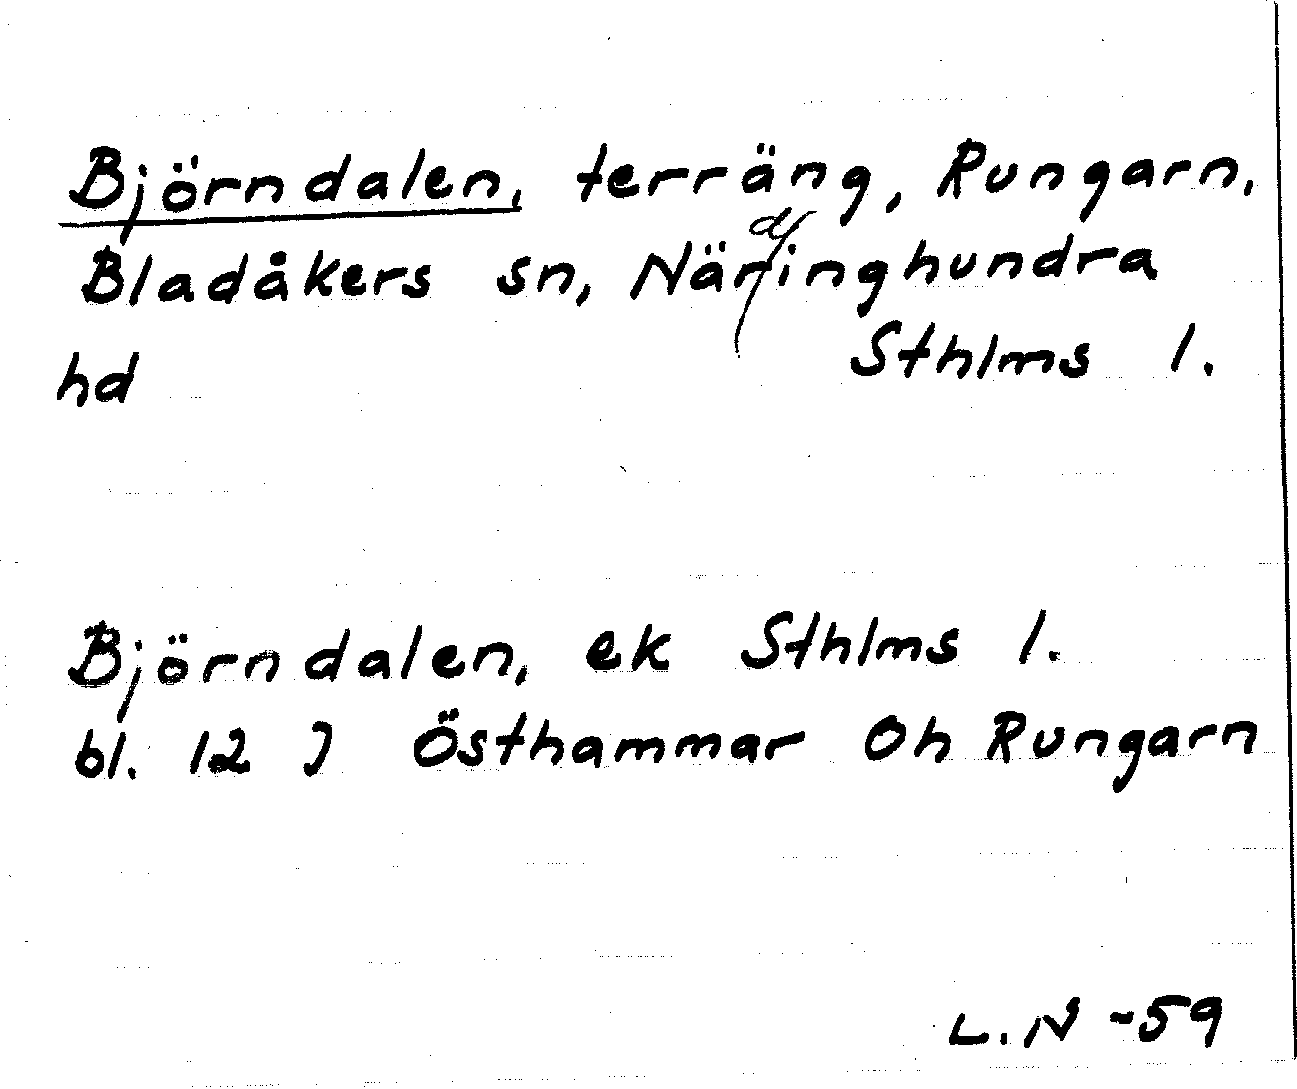 Björndalen, terräng, Rungarn,
Bladåkers sn, Närdinghundra
hd Sthlms l.
Björndalen, ek Sthlms l.
bl. 12 J Östhammar Oh Rungarn
L.N -59